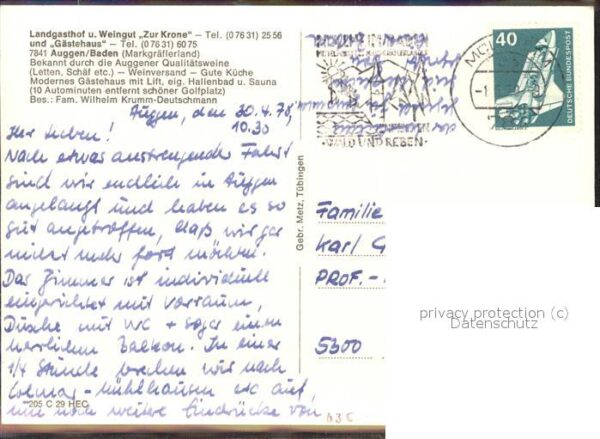 Landgasthof u. Weingut „Zur Krone" – Tel. (0 76 31) 25 56
und „Gästehaus" – Tel. (0 76 31) 60 75
7841 Auggen/Baden (Markgräflerland)
Bekannt durch die Auggener Qualitätsweine
(Letten, Schäf etc.) – Weinversand – Gute Küche
Modernes Gästehaus mit Lift, eig. Hallenbad u. Sauna
(10 Autominuten entfernt schöner Golfplatz)
Bes.: Fam. Wilhelm Krumm-Deutschmann
Auggen, den 30.4.78,
10.30
Ihr Lieben!
Nach etwas anstrengender Fahrt
sind wir endlich in Auggen
angelangt und haben es so
gut angetroffen, daß wir gar
nicht mehr fort möchten.
Das Zimmer ist individuell
eingerichtet mit Vorraum,
Dusche mit WC + sogar einen
herrlichen Balkon. In einer
1/4 Stunde brechen wir nach
Colmar - Mühlhausen etc auf,
um noch weitere Eindrücke von
205 C 29 HEC
Gebr. Metz, Tübingen
WALD UND REBEN
40
DEUTSCHE BUNDESPOST
Familie
Karl G
PROF.-
5300
privacy protection (c)
Datenschutz